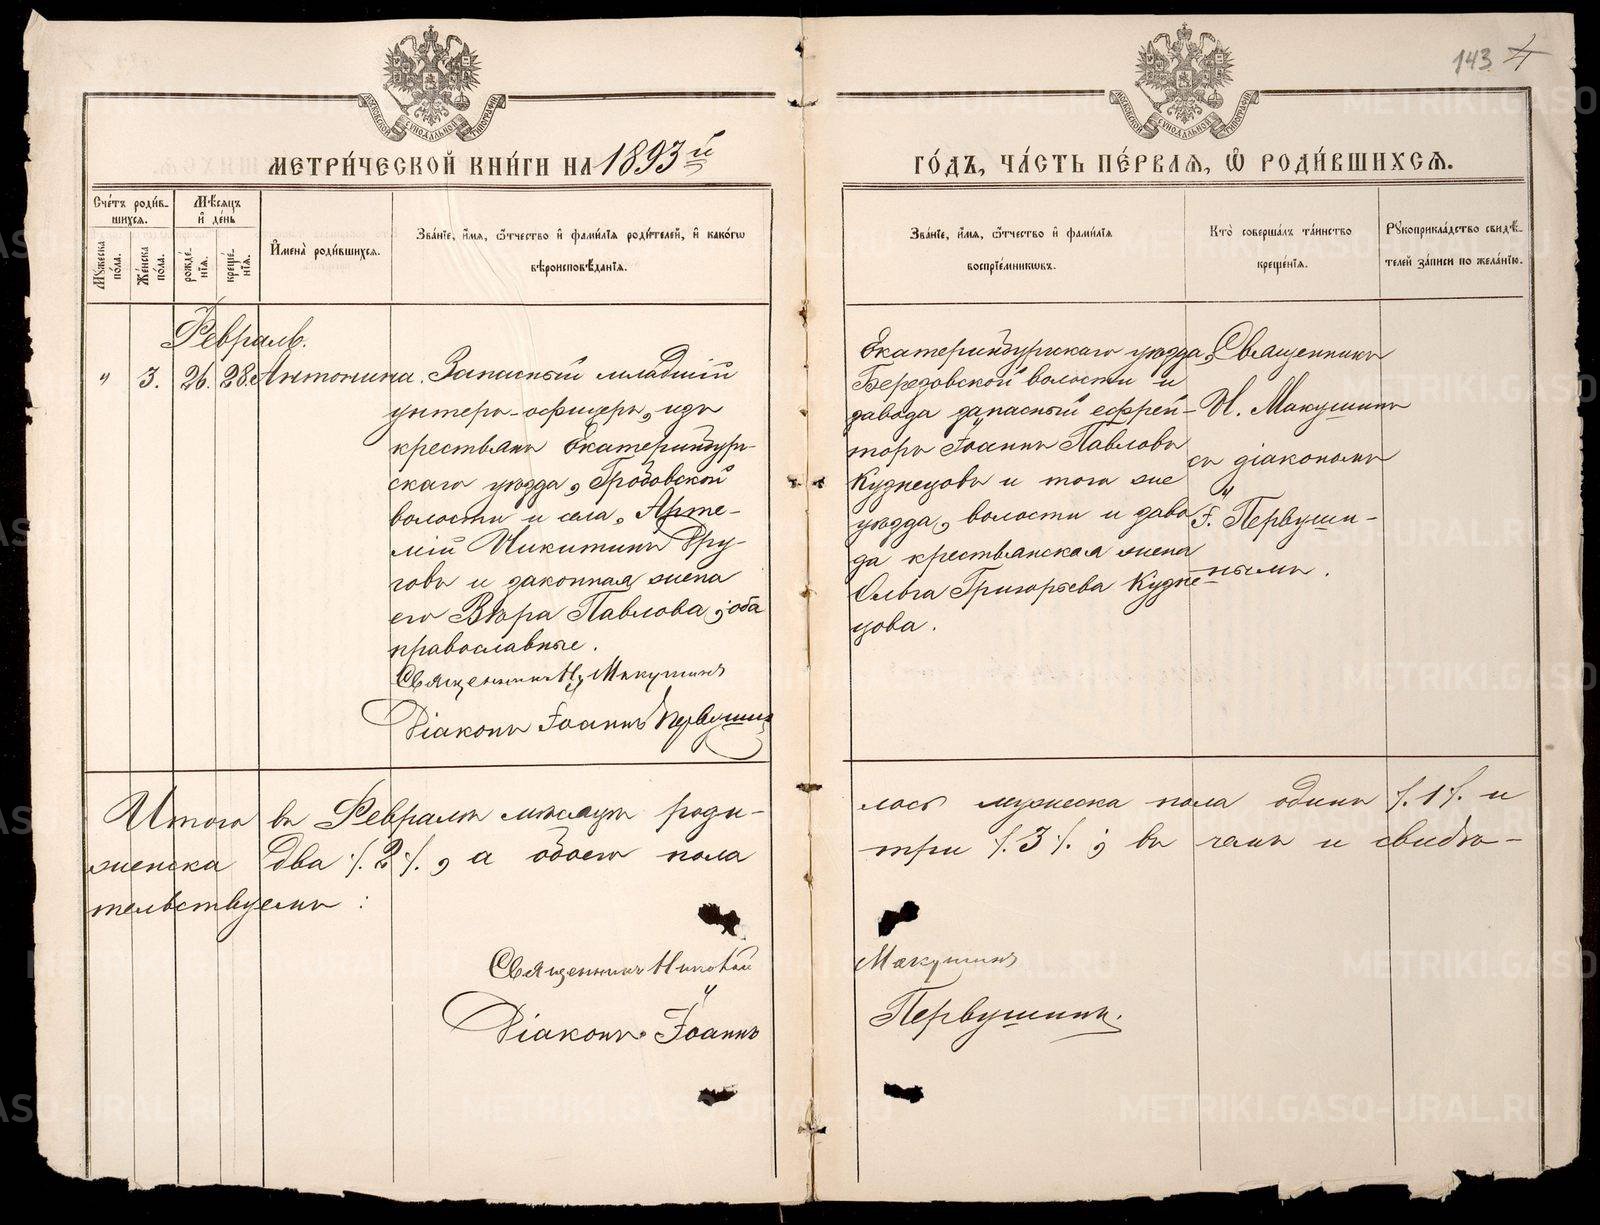 143
МОСКОВСКОЙ СѴНОДАЛЬНОЙ ТИПОГРАФІИ
МОСКОВСКОЙ СѴНОДАЛЬНОЙ ТИПОГРАФІИ
МЕТРИ́ЧЕСКОЙ КНИ́ГИ НА 1893й
ГО́ДЪ, ЧА́СТЬ ПЕ́РВАѦ, Ѡ҆ РОДИ́ВШИХСѦ.
Сче́тъ роди́в-
шихсѧ.
Мѣ́сѧцъ
и҆ де́нь
Мꙋ́жеска
по́ла.
Же́нска
по́ла.
рожде́-
нїѧ.
креще́-
нїѧ.
И҆мена̀ роди́вшихсѧ.
Зва́нїе, и҆́мѧ, ѻ҆́тчество и҆ фами́лїѧ роди́телей, и҆ како́гѡ
вѣроисповѣ́данїѧ.
Зва́нїе, и҆́мѧ, ѻ҆́тчество и҆ фами́лїѧ
воспрїе́мникѡвъ.
Кто̀ соверша́лъ та́инство
креще́нїѧ.
Рꙋкоприкла́дство свидѣ́-
телей за́писи по жела́нїю.
Февраль.
" 3. 26. 28. Антонина. Запасный младшій
унтеръ-офицеръ, изъ
крестьянъ Екатеринбург-
скаго уѣзда, Гробовской
волости и села, Арте-
мій Никитинъ Дру-
говъ и законная жена
его Вѣра Павлова; оба
православные.
Священникъ Н. Макушинъ
Діаконъ Іоаннъ Первушинъ
Екатеринбургскаго уѣзда,
Березовской волости и
завода запасный ефрей-
торъ Іоаннъ Павловъ
Кузнецовъ и того же
уѣзда, волости и заво
да крестьянская жена
Ольга Григорьева Кузне-
цова.
Священникъ
Н. Макушинъ
съ діакономъ
І. Первуши-
нымъ.
Итого въ Февралѣ мѣсяцѣ роди- лось мужеска пола одинъ /.1/. и
женска два /.2/., а обоего пола три /.3/.; въ чемъ и свидѣ-
тельствуемъ:
Священникъ Николай Макушинъ
Діаконъ Іоаннъ Первушинъ.
METRIKI.GASO-URAL.RU